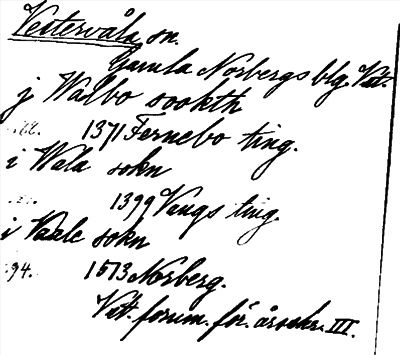 Vestervåla sn.
Gamla Norbergs blg. Vet.
j Walbo sookth
1371 Fernebo ting.
i Wala sokn
1399 Vangs ting.
i Vaale sokn
94. 1513 Norberg.
Vitt. forum. för. årsskr. III.